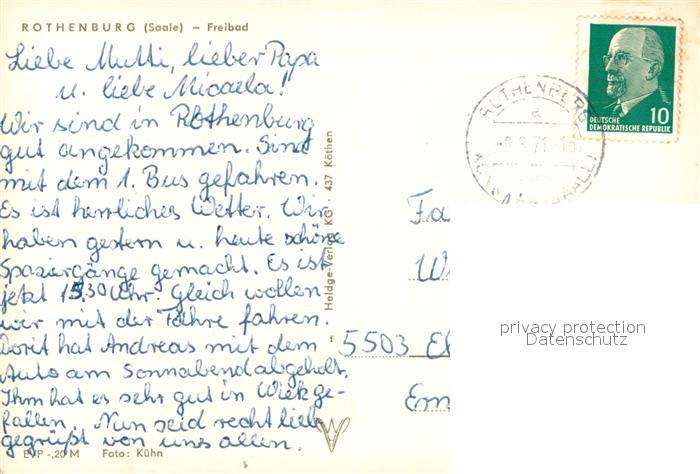 ROTHENBURG (Saale) – Freibad
Liebe Mutti, lieber Papa
u. liebe Micaela!
Wir sind in Rothenburg
gut angekommen. Sind
mit dem 1. Bus gefahren.
Es ist herrliches Wetter. Wir
haben gestern u. heute schöne
Spaziergänge gemacht. Es ist
jetzt 15.30 Uhr. Gleich wollen
wir mit der Fähre fahren.
Dorit hat Andreas mit dem
Auto am Sonnabend abgeholt.
Ihm hat es sehr gut in Wiek ge-
fallen. Nun seid recht lieb
gegrüßt von uns allen.
EVP -,20 M Foto: Kühn
Heldge-Verlag KG · 437 Köthen
DEUTSCHE
DEMOKRATISCHE REPUBLIK
10
ROTHENBURG
a
5503
privacy protection
Datenschutz